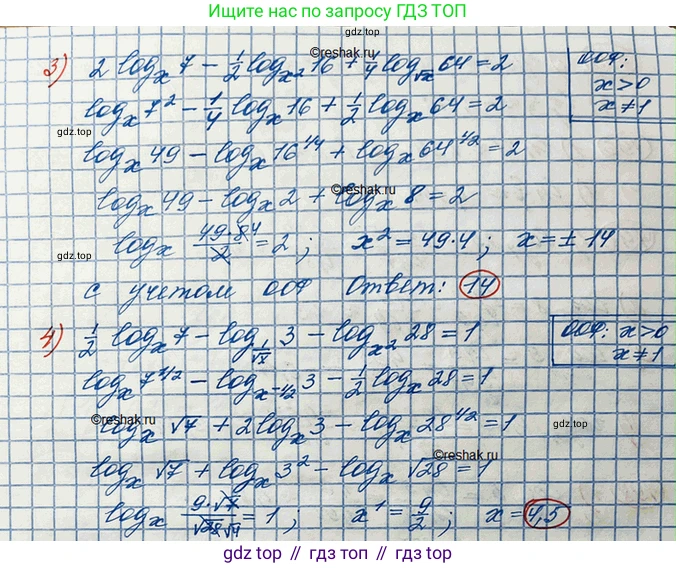 Ищите нас по запросу ГДЗ ТОП
gdz.top
©reshak.ru
3) 2 log_x 7 - 1/2 log_x² 16 + 1/4 log_√x 64 = 2
ООФ:
x > 0
x ≠ 1
log_x 7² - 1/4 log_x 16 + 1/2 log_x 64 = 2
gdz.top
log_x 49 - log_x 16^1/4 + log_x 64^1/2 = 2
©reshak.ru
log_x 49 - log_x 2 + log_x 8 = 2
gdz.top
log_x 49·8 4/2 = 2; x² = 49·4; x = ± 14
с учетом ООФ Ответ: 14
gdz.top
4) 1/2 log_x 7 - log_1/√x 3 - log_x² 28 = 1
ООФ: x > 0
x ≠ 1
log_x 7^1/2 - log_x^-1/2 3 - 1/2 log_x 28 = 1
©reshak.ru
gdz.top
log_x √7 + 2 log_x 3 - log_x 28^1/2 = 1
©reshak.ru
log_x √7 + log_x 3² - log_x √28 = 1
log_x 9·√7/√28 √4 = 1; x¹ = 9/2; x = 4,5
gdz.top
gdz.top // гдз.топ // гдз топ